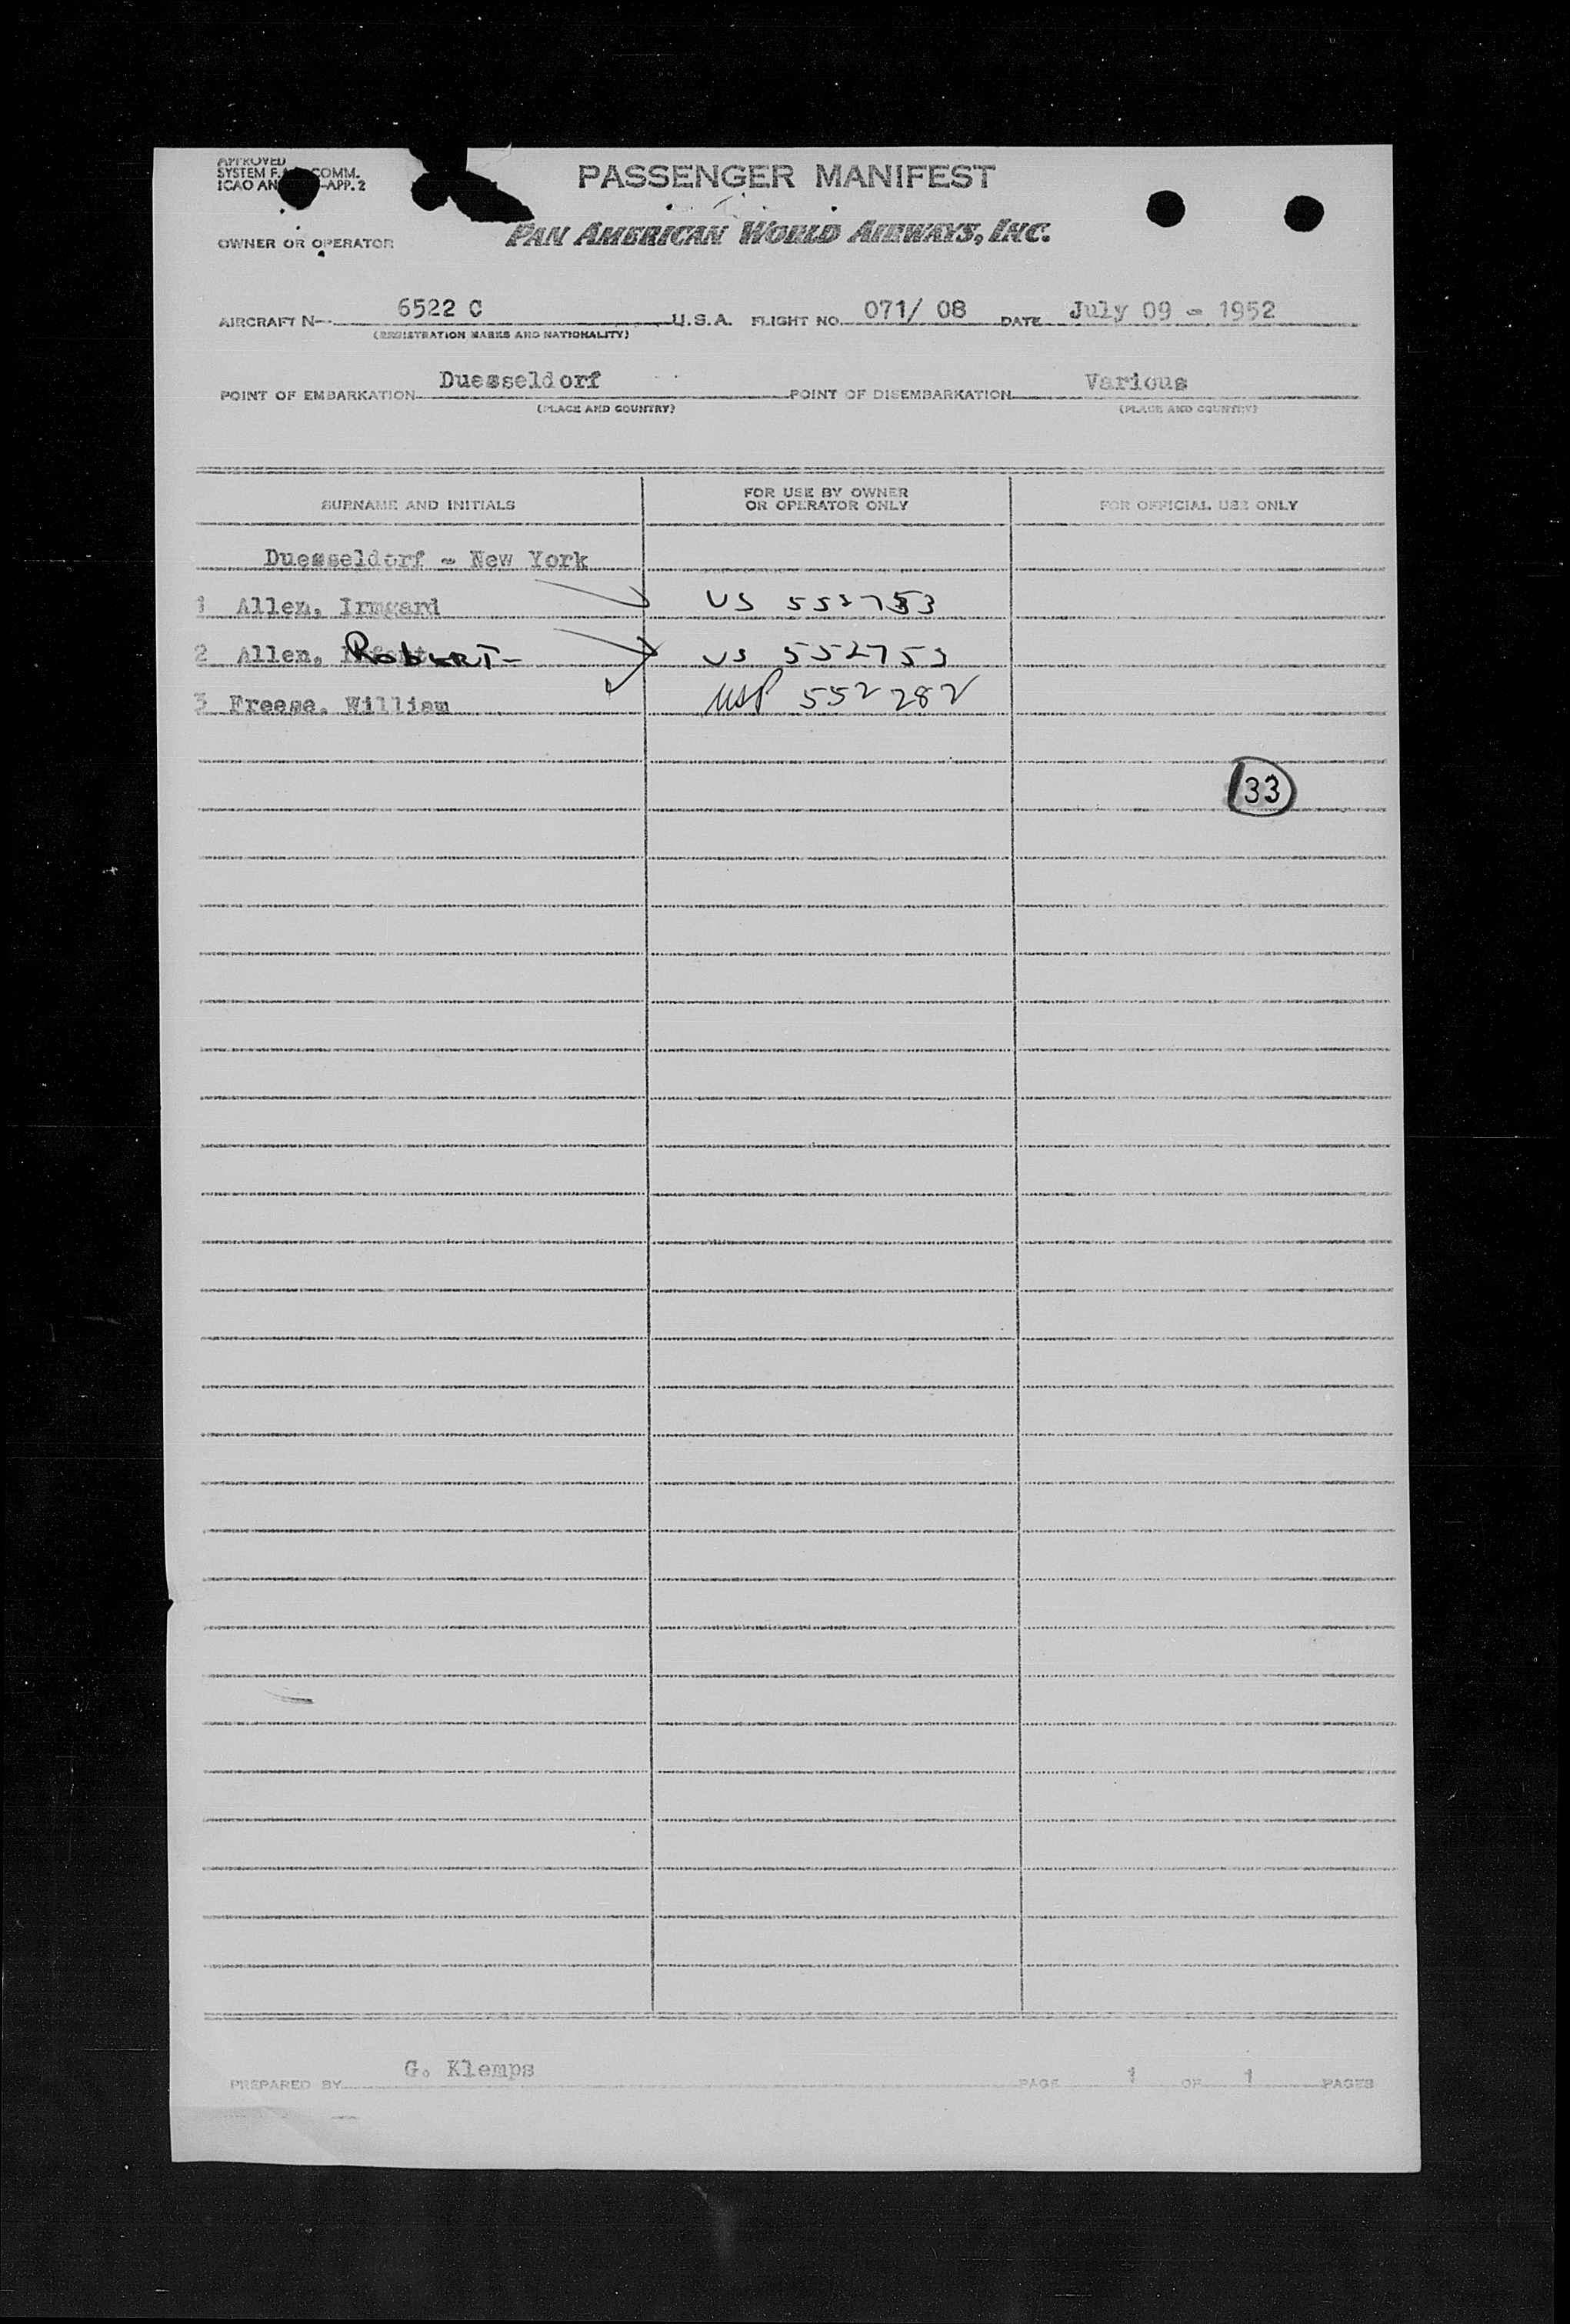 APPROVED
SYSTEM F. COMM.
ICAO AN -APP. 2
PASSENGER MANIFEST
OWNER OR OPERATOR PAN AMERICAN WORLD AIRWAYS, INC.
AIRCRAFT N- 6522 C U.S.A. FLIGHT NO. 071/ 08 DATE July 09 - 1952
(REGISTRATION MARKS AND NATIONALITY)
POINT OF EMBARKATION Duesseldorf POINT OF DISEMBARKATION Various
(PLACE AND COUNTRY) (PLACE AND COUNTRY)
SURNAME AND INITIALS FOR USE BY OWNER OR OPERATOR ONLY FOR OFFICIAL USE ONLY
Duesseldorf - New York
1 Allen, Irmgard US 552753
2 Allen, ROBERT- US 552753
3 Freese, William USP 552282
133
PREPARED BY G. Klemps PAGE 1 OF 1 PAGES